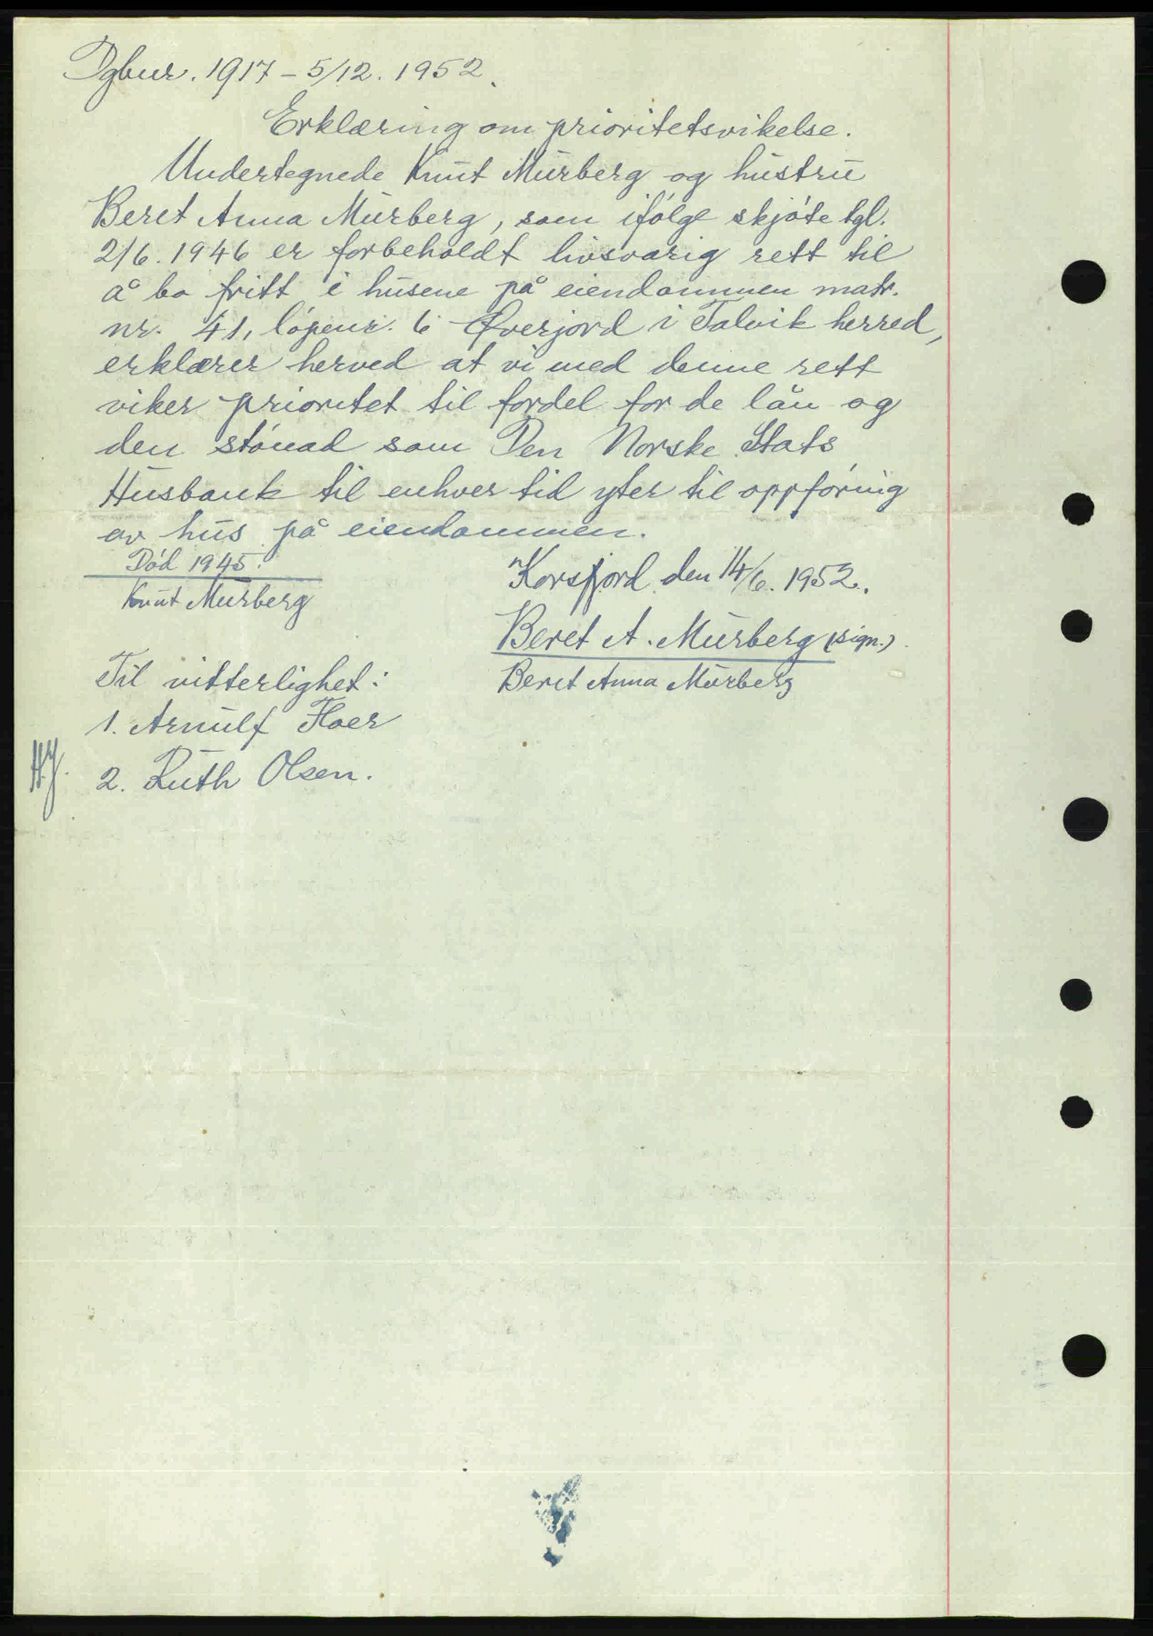 Dgbnr. 1917 - 5/12. 1952.
Erklæring om prioritetsvikelse.
Undertegnede Knut Murberg og hustru
Beret Anna Murberg, som ifølge skjøte tgl.
2/6. 1946 er forbeholdt livsvarig rett til
å bo fritt i husene på eiendommen matr.
nr. 41, løpenr. 6 Øverjord i Talvik herred,
erklærer herved at vi med denne rett
viker prioritet til fordel for de lån og
den stønad som Den Norske Stats
Husbank til enhver tid yter til oppføring
av hus på eiendommen.
Død 1945.
Knut Murberg
Korsfjord den 14/6. 1952.
Beret A. Murberg (sign.)
Beret Anna Murberg
Til vitterlighet:
1. Arnulf
2. Ruth Olsen.